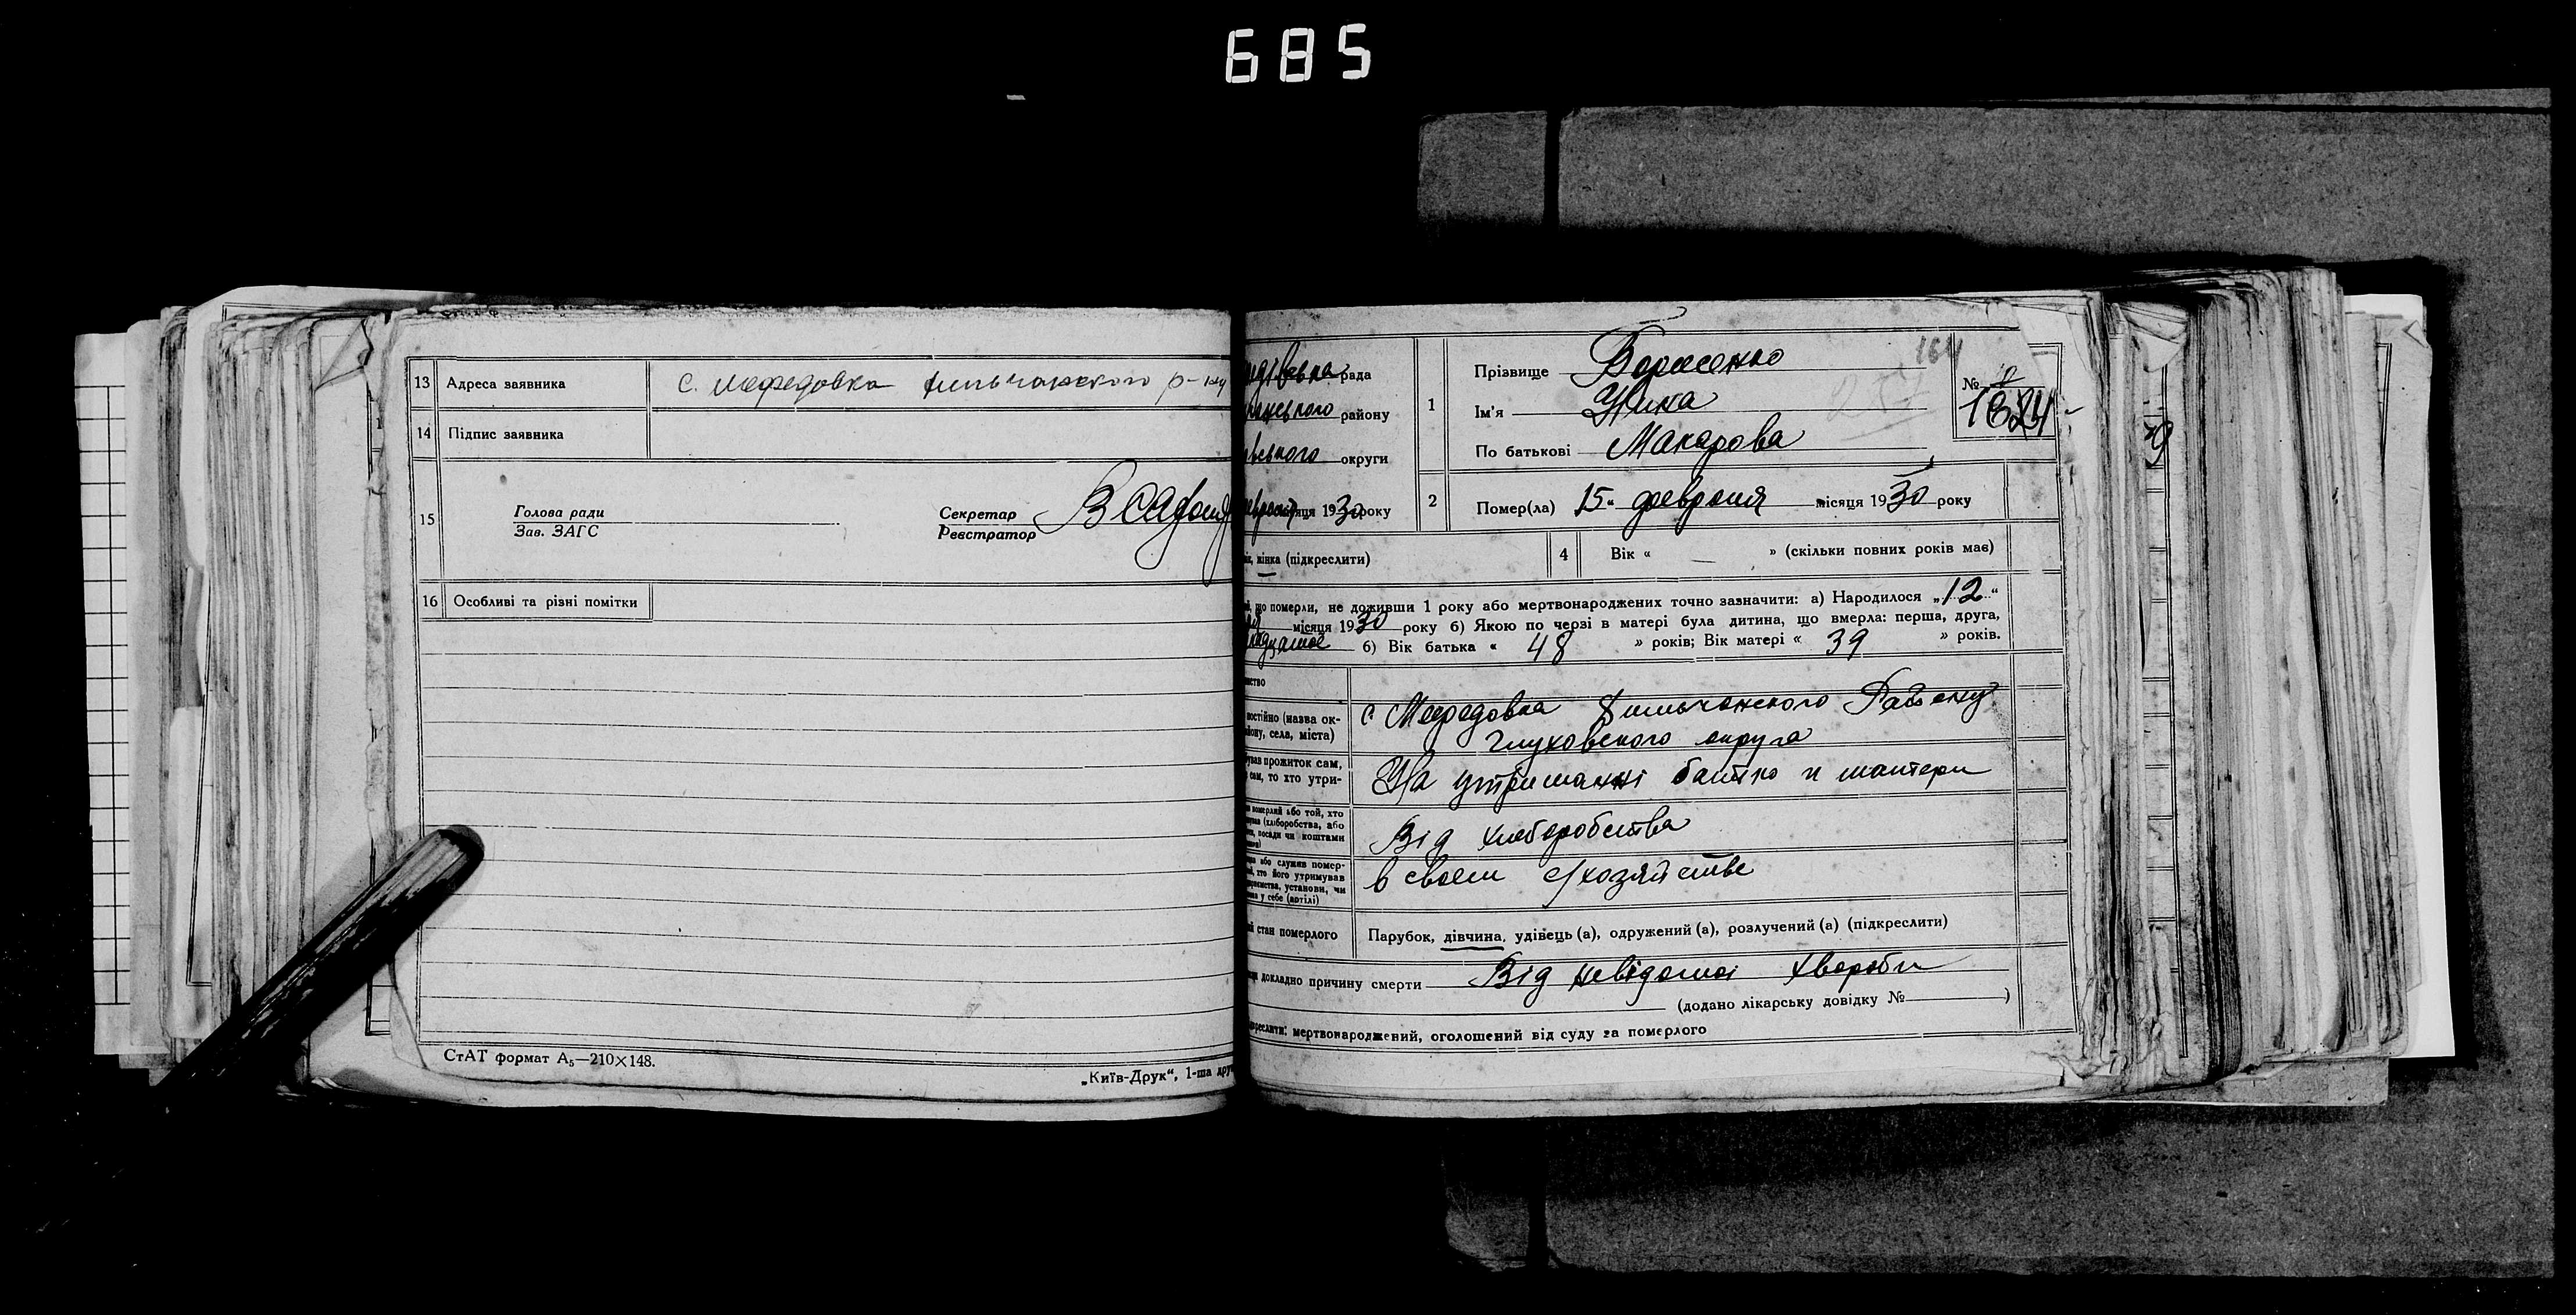 685
13 Адреса заявника с. Мефедовка Хильчанского р-ну
14 Підпис заявника
15 Голова ради
Зав. ЗАГС
Секретар
Реєстратор
16 Особливі та різні помітки
СтАТ формат А5—210×148.
„Київ-Друк“, 1-ша
164
рада
району
округи
1930 року
1 Прізвище Борисенко
Ім'я Нина
По батькові Макарова
№
1824
2 Помер(ла) 15 „ февраля місяця 1930 року
жінка (підкреслити)
4 Вік « — » (скільки повних років має)
що померли, не доживши 1 року або мертвонароджених точно зазначити: а) Народилося „12“
місяця 1930 року б) Якою по черзі в матері була дитина, що вмерла: перша, друга,
б) Вік батька « 48 » років; Вік матері « 39 » років.
постійно (назва ок-
села, міста)
с Мефедовка Хильчанского Району
Глуховского округа
прожиток сам,
сам, то хто утри-
На утриманні батько и матери
померлий або той, хто
(хліборобства, або
посади чи коштами
Від хлеборобства
або служив помер-
хто його утримував
установи, чи
у себе (артілі)
в своем с/хозяйстве
стан померлого Парубок, дівчина, удівець (а), одружений (а), розлучений (а) (підкреслити)
докладно причину смерти Від невідомої хвороби
(додано лікарську довідку № )
мертвонароджений, оголошений від суду за померлого